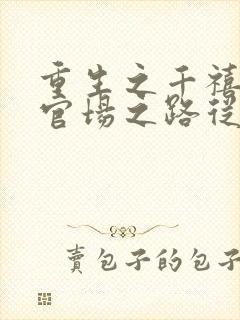 重生之千禧
官場之路從
賣包子的包子